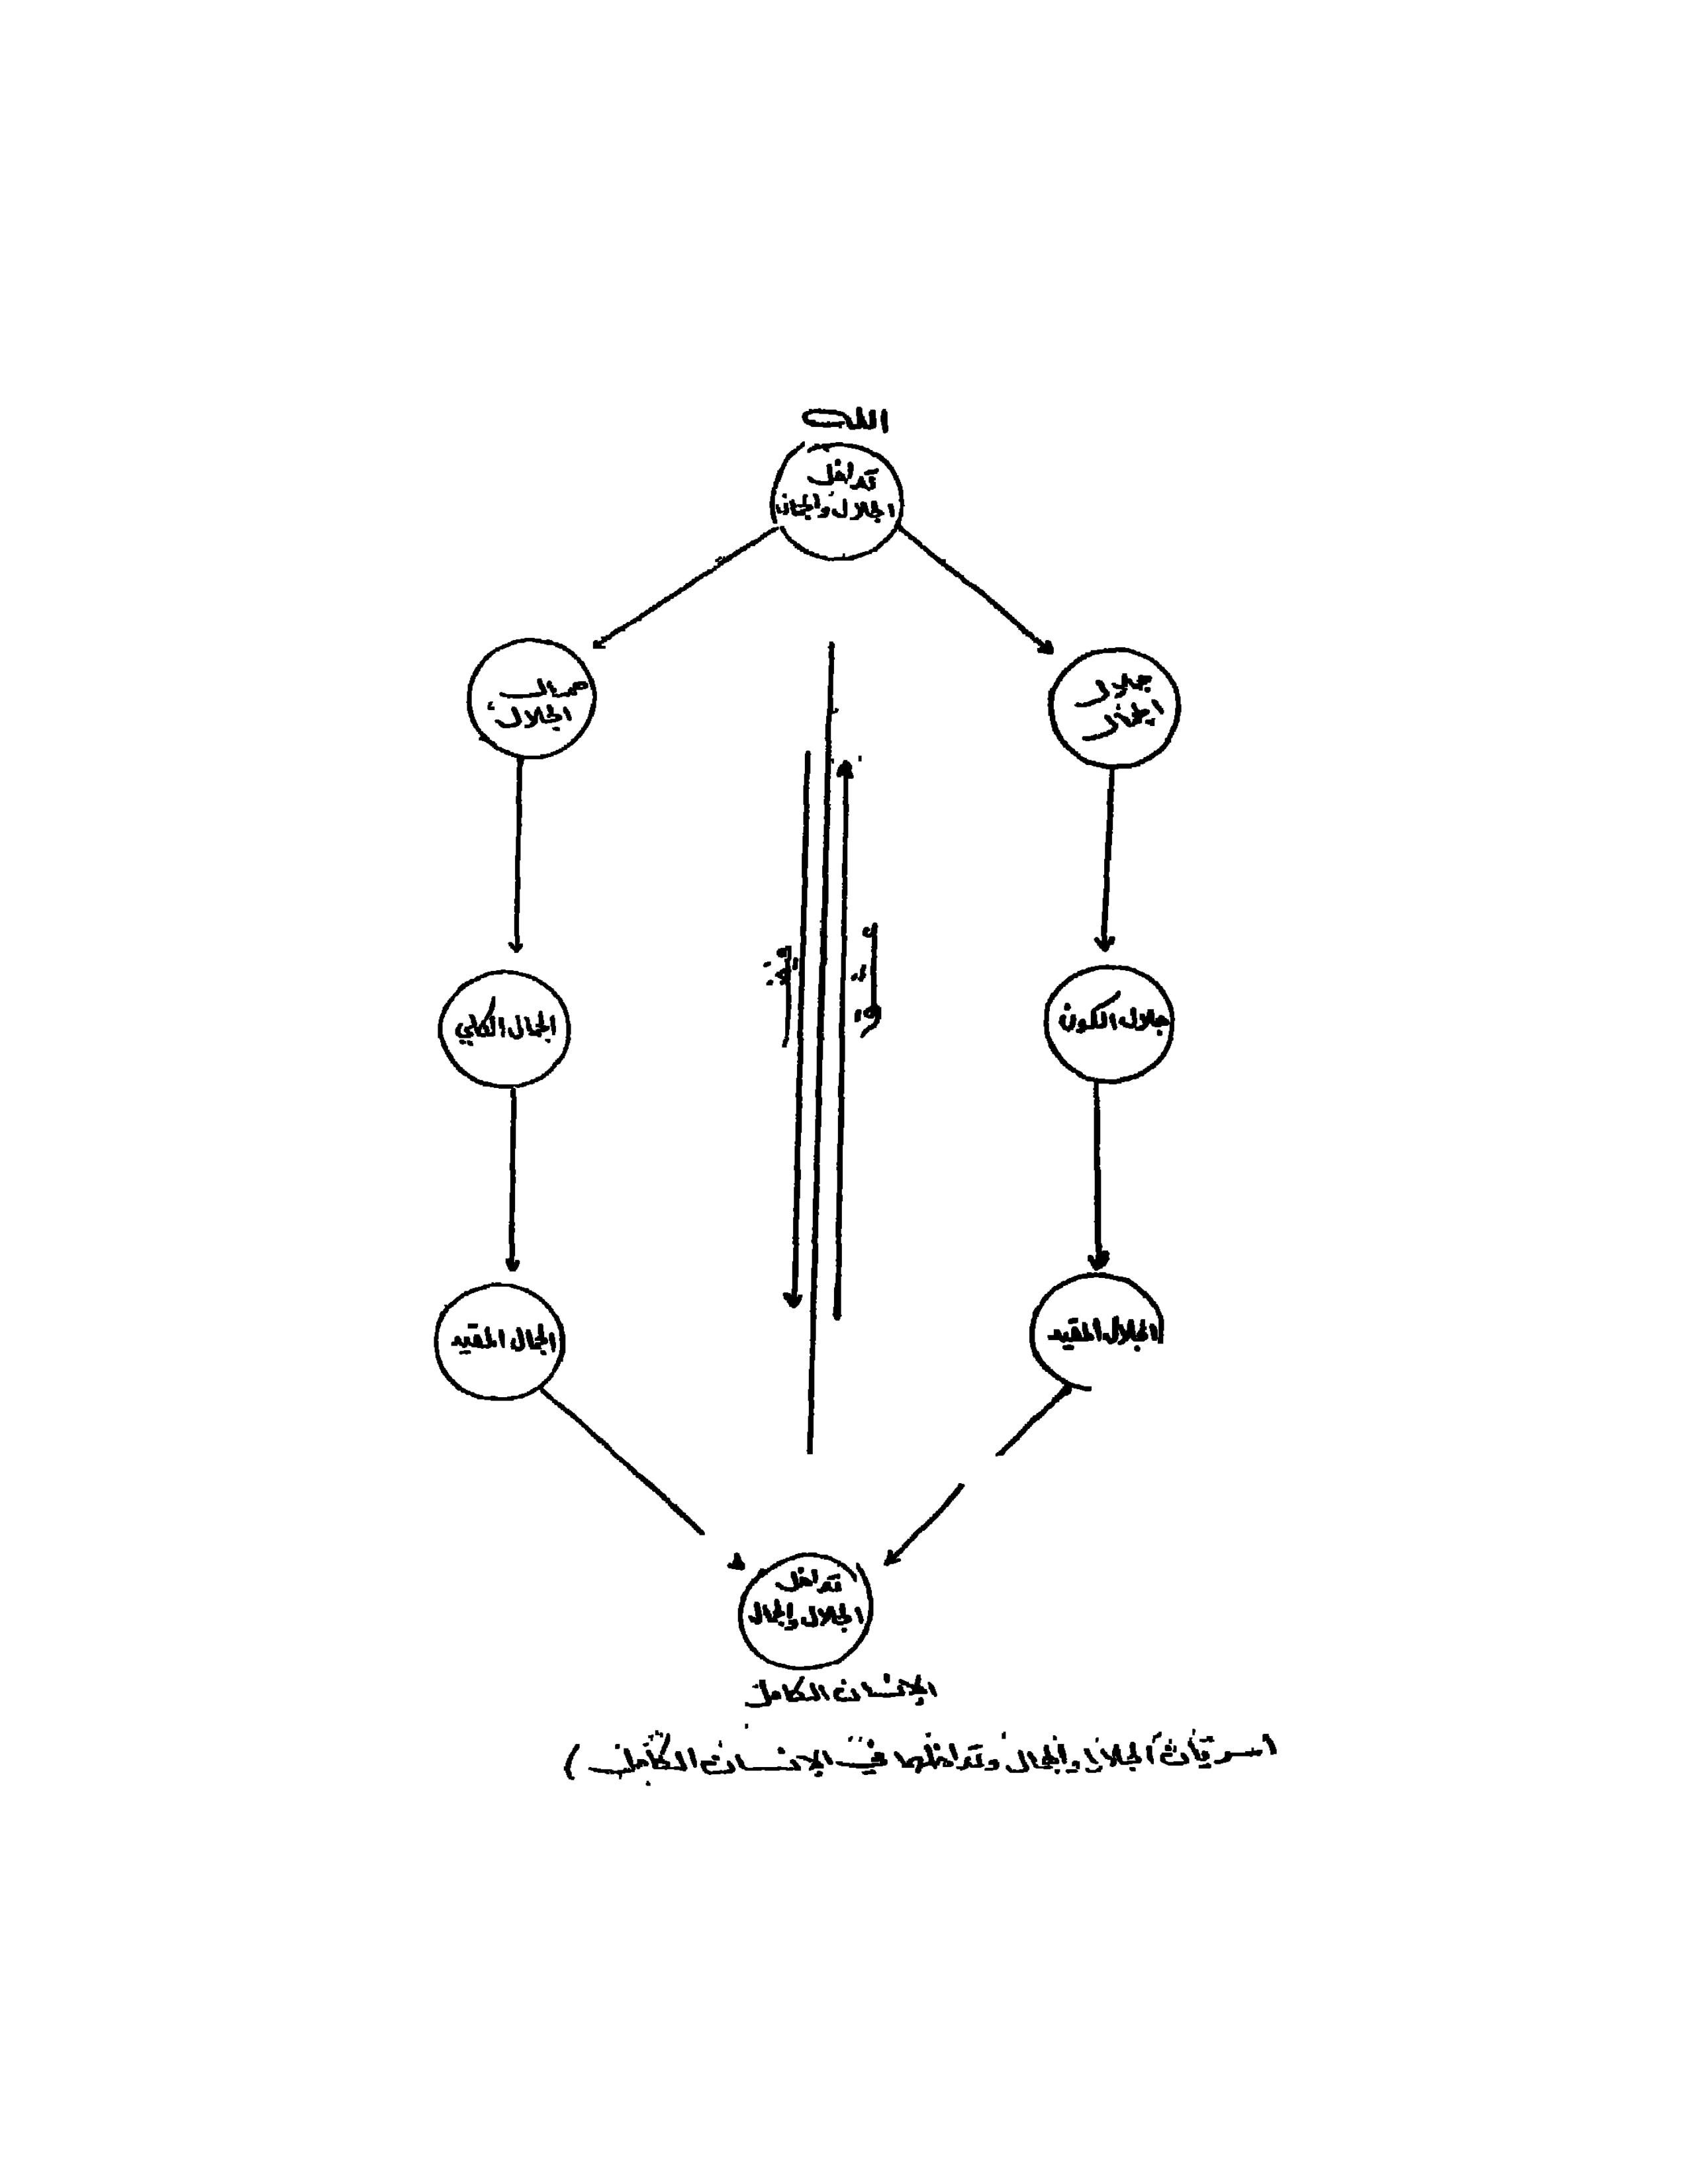 الله
تداخل
الجلال والجمال
جلال
الجمال
جمال
الجلال
جلال الكون
الجمال الكلي
الجلال المقيد
الجمال المقيد
تداخل
الجلال والجمال
الإنسان الكامل
(سريان الجلال والجمال وتداخلهما في الإنسان الكامل)